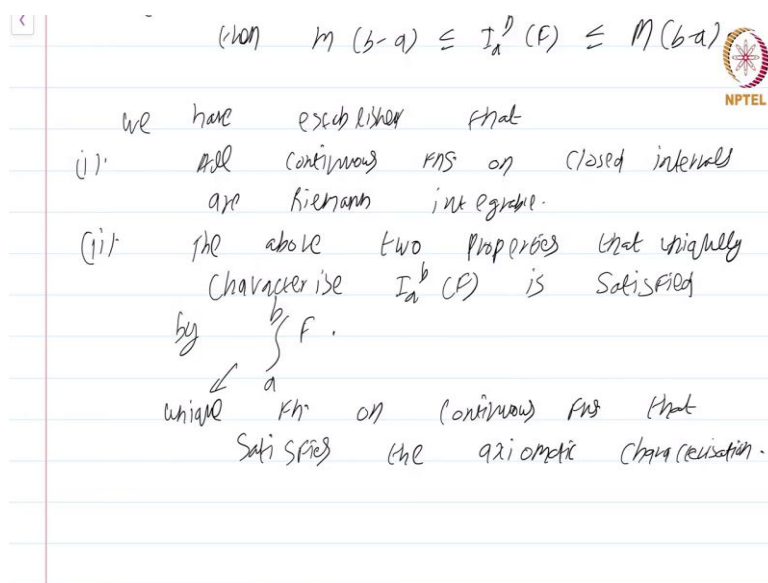 then m (b-a) ≤ I_a^b (F) ≤ M (b-a)
NPTEL
we have established that
(i). All continuous Fns. on closed intervals
are Riemann integrable.
(ii). The above two properties that uniquely
characterise I_a^b (F) is satisfied
by ∫_a^b F.
unique Fn. on continuous Fns that
satisfies the axiomatic characterisation.